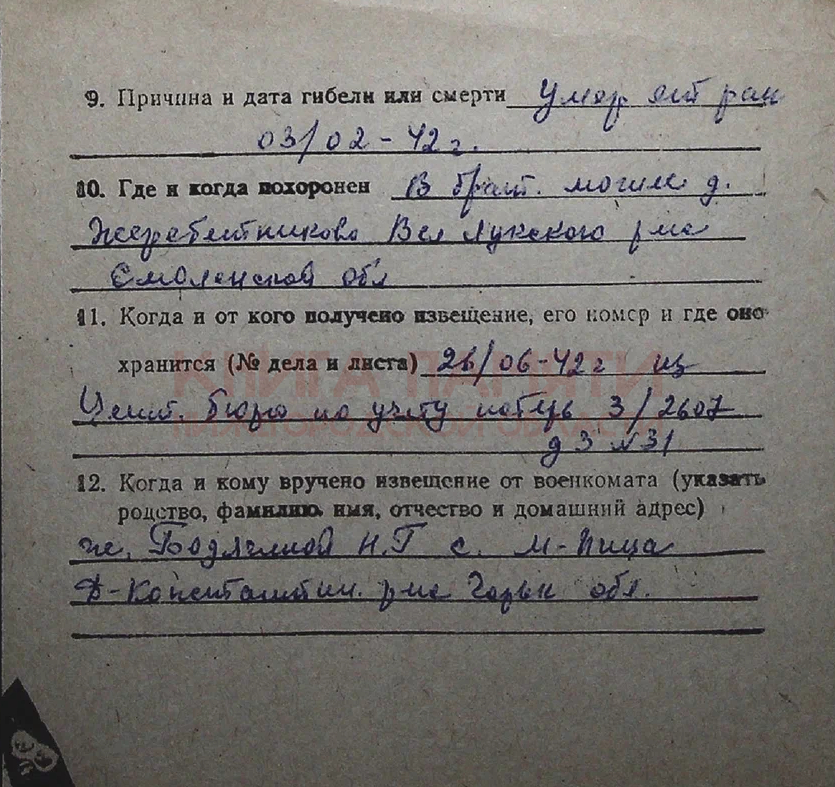 9. Причина и дата гибели или смерти умер от ран
03/02-42 г.
10. Где и когда похоронен В брат. могиле д.
Жеребятниково Вел Лукского р-на
Смоленской обл
11. Когда и от кого получено извещение, его номер и где оно
хранится (№ дела и листа) 26/06-42 г из
Цент. бюро по учету потерь 3/2607
д 3 № 31
12. Когда и кому вручено извещение от военкомата (указать
родство, фамилию, имя, отчество и домашний адрес)
Н.Г с. М-Пица
Д-Константин. р-на Горьк обл.
КНИГА ПАМЯТИ
НИЖЕГОРОДСКОЙ ОБЛАСТИ